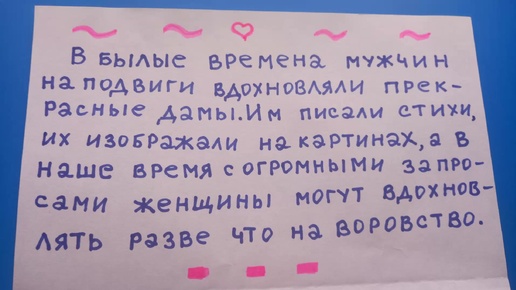 В былые времена мужчин
на подвиги вдохновляли прек-
расные дамы. Им писали стихи,
их изображали на картинах, а в
наше время с огромными запро-
сами женщины могут вдохнов-
лять разве что на воровство.